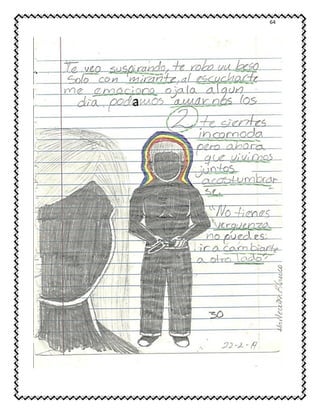 64
Te veo suspirando, te robo un beso
Solo con mirarte, al escucharte
me emociona ojala algun
dia podamos amarnos los
2 te sientes
incomoda
pero ahora
que vivimos
juntos
acostumbrar
se.
"No tienes
verguenza
no puedes
ir a cambiarte
a otro lado"
30
22-2-19